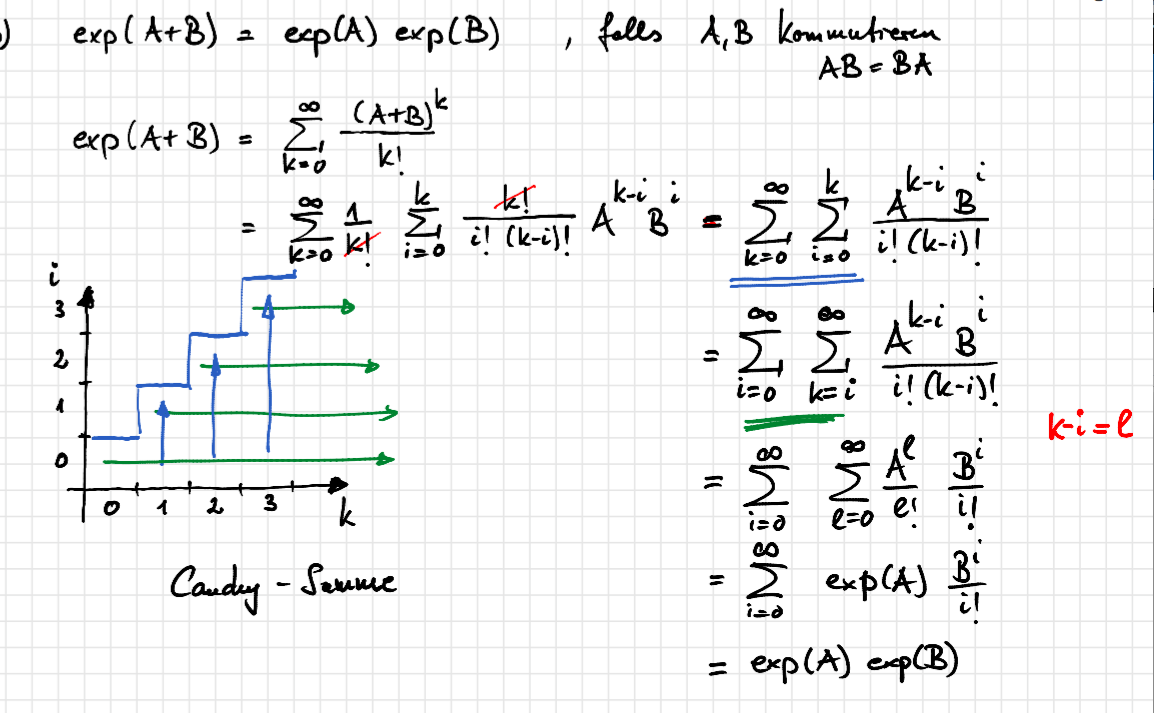 ) exp(A+B) = exp(A) exp(B) , falls A, B kommutieren
AB = BA
exp(A+B) = ∑_{k=0}^{∞} (A+B)^k / k!
= ∑_{k=0}^{∞} 1/k! ∑_{i=0}^{k} k! / (i! (k-i)!) A^{k-i} B^i = ∑_{k=0}^{∞} ∑_{i=0}^{k} A^{k-i} B^i / (i! (k-i)!)
= ∑_{i=0}^{∞} ∑_{k=i}^{∞} A^{k-i} B^i / (i! (k-i)!)
k-i = l
= ∑_{i=0}^{∞} ∑_{l=0}^{∞} A^l / l! B^i / i!
= ∑_{i=0}^{∞} exp(A) B^i / i!
= exp(A) exp(B)
i
3
2
1
0
0 1 2 3
k
Cauchy - Summe